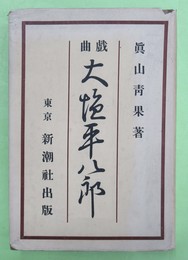 眞山青果著
戯曲
大塩平八郎
東京 新潮社出版